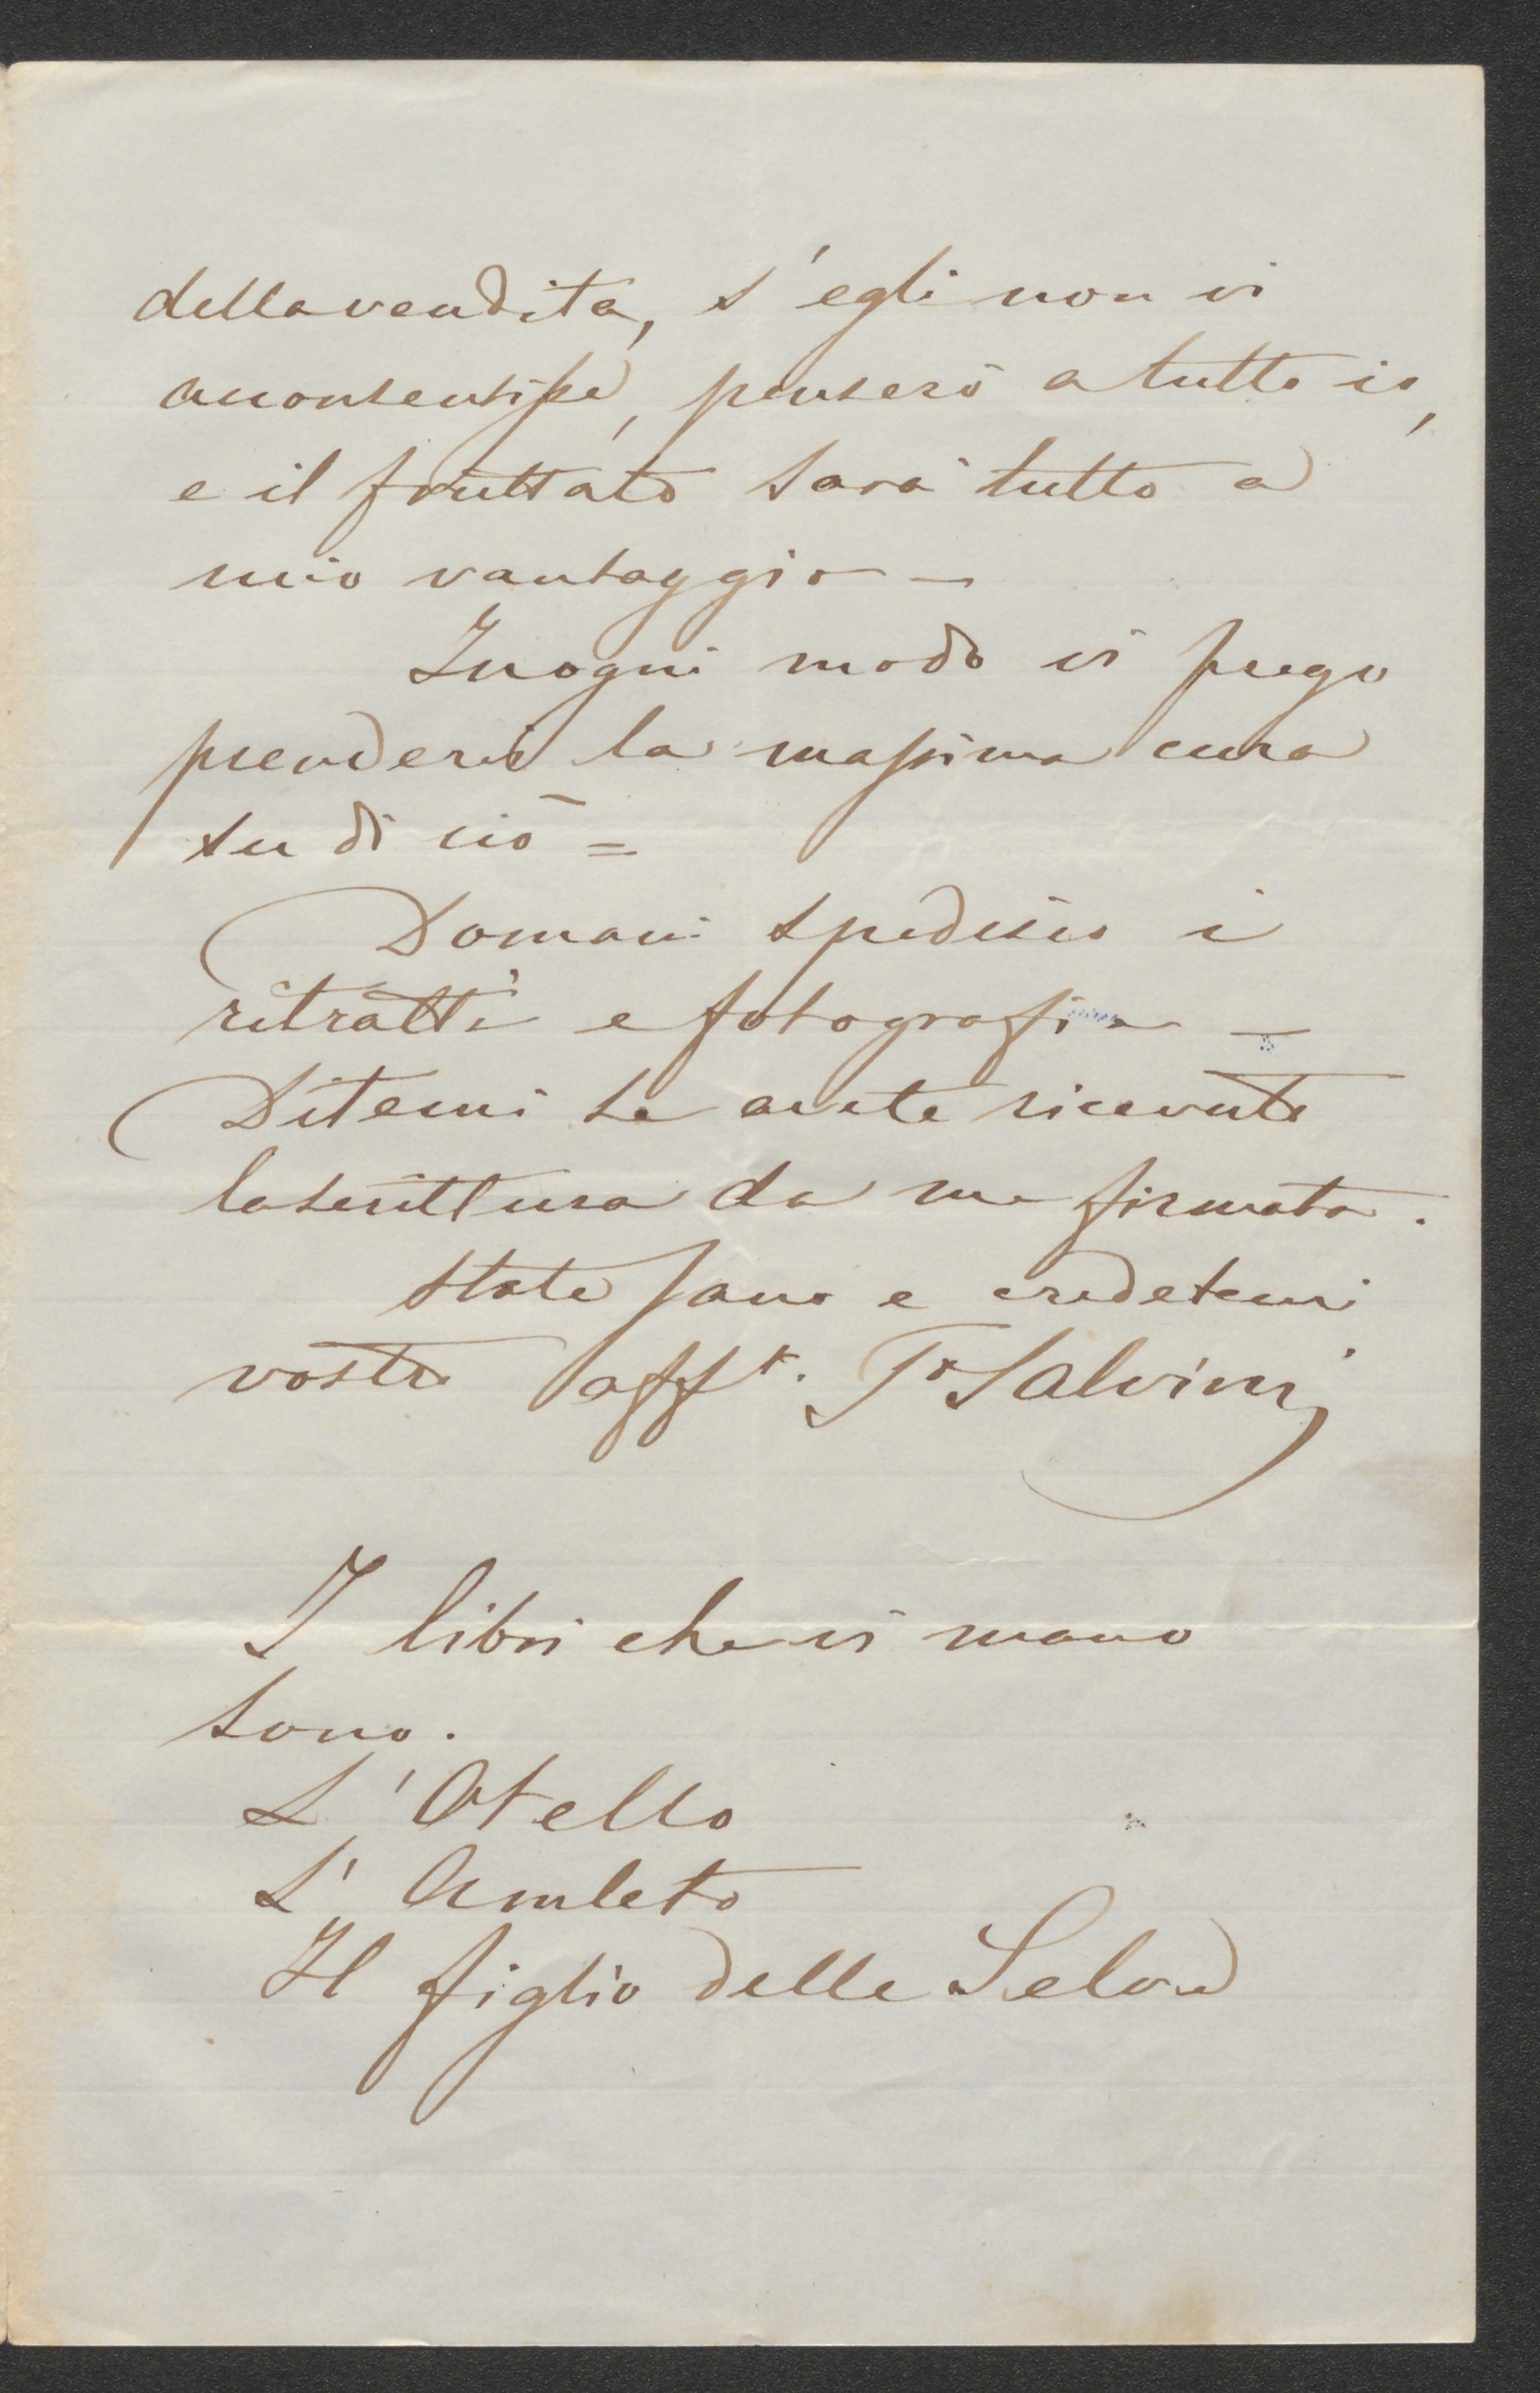 della vendita, s'egli non vi
acconsentisse, penserò a tutto io,
e il fruttato sarà tutto a
mio vantaggio —
In ogni modo vi prego
prendervi la massima cura
su di ciò =
Domani spedisco i
ritratti e fotografie —
Ditemi se avete ricevuto
la scrittura da me firmata.
State sano e credetemi
vostro aff.º T. Salvini
I libri che vi mano
sono.
L'Otello
L'Amleto
Il figlio delle Selve